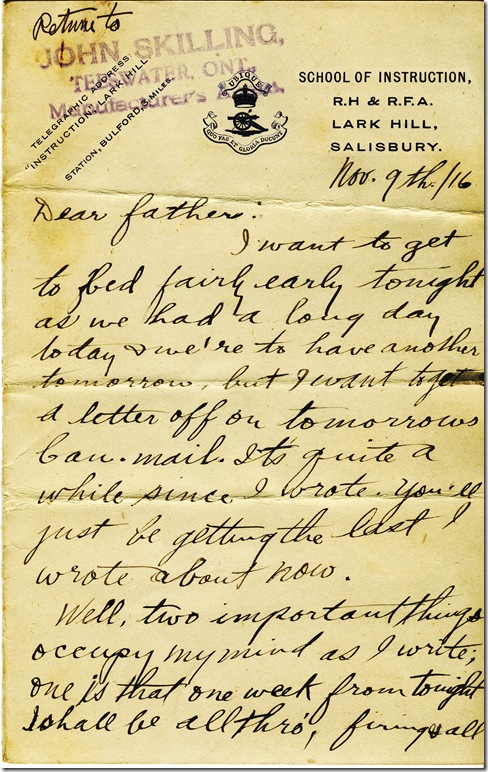 Return to
JOHN SKILLING,
TEESWATER, ONT.,
Manufacturer's
TELEGRAPHIC ADDRESS:
"INSTRUCTION, LARK HILL.
STATION, BULFORD 3 MILES.
UBIQUE
QUO FAS ET GLORIA DUCUNT
SCHOOL OF INSTRUCTION,
R.H & R.F.A.
LARK HILL,
SALISBURY.
Nov. 9th./16
Dear father:
I want to get
to bed fairly early tonight
as we had a long day
today & we're to have another
tomorrow, but I want to get
a letter off on tomorrows
Can. mail. It's quite a
while since I wrote. You'll
just be getting the last I
wrote about now.
Well, two important things
occupy my mind as I write;
one is that one week from tonight
I shall be all thro', firing & all